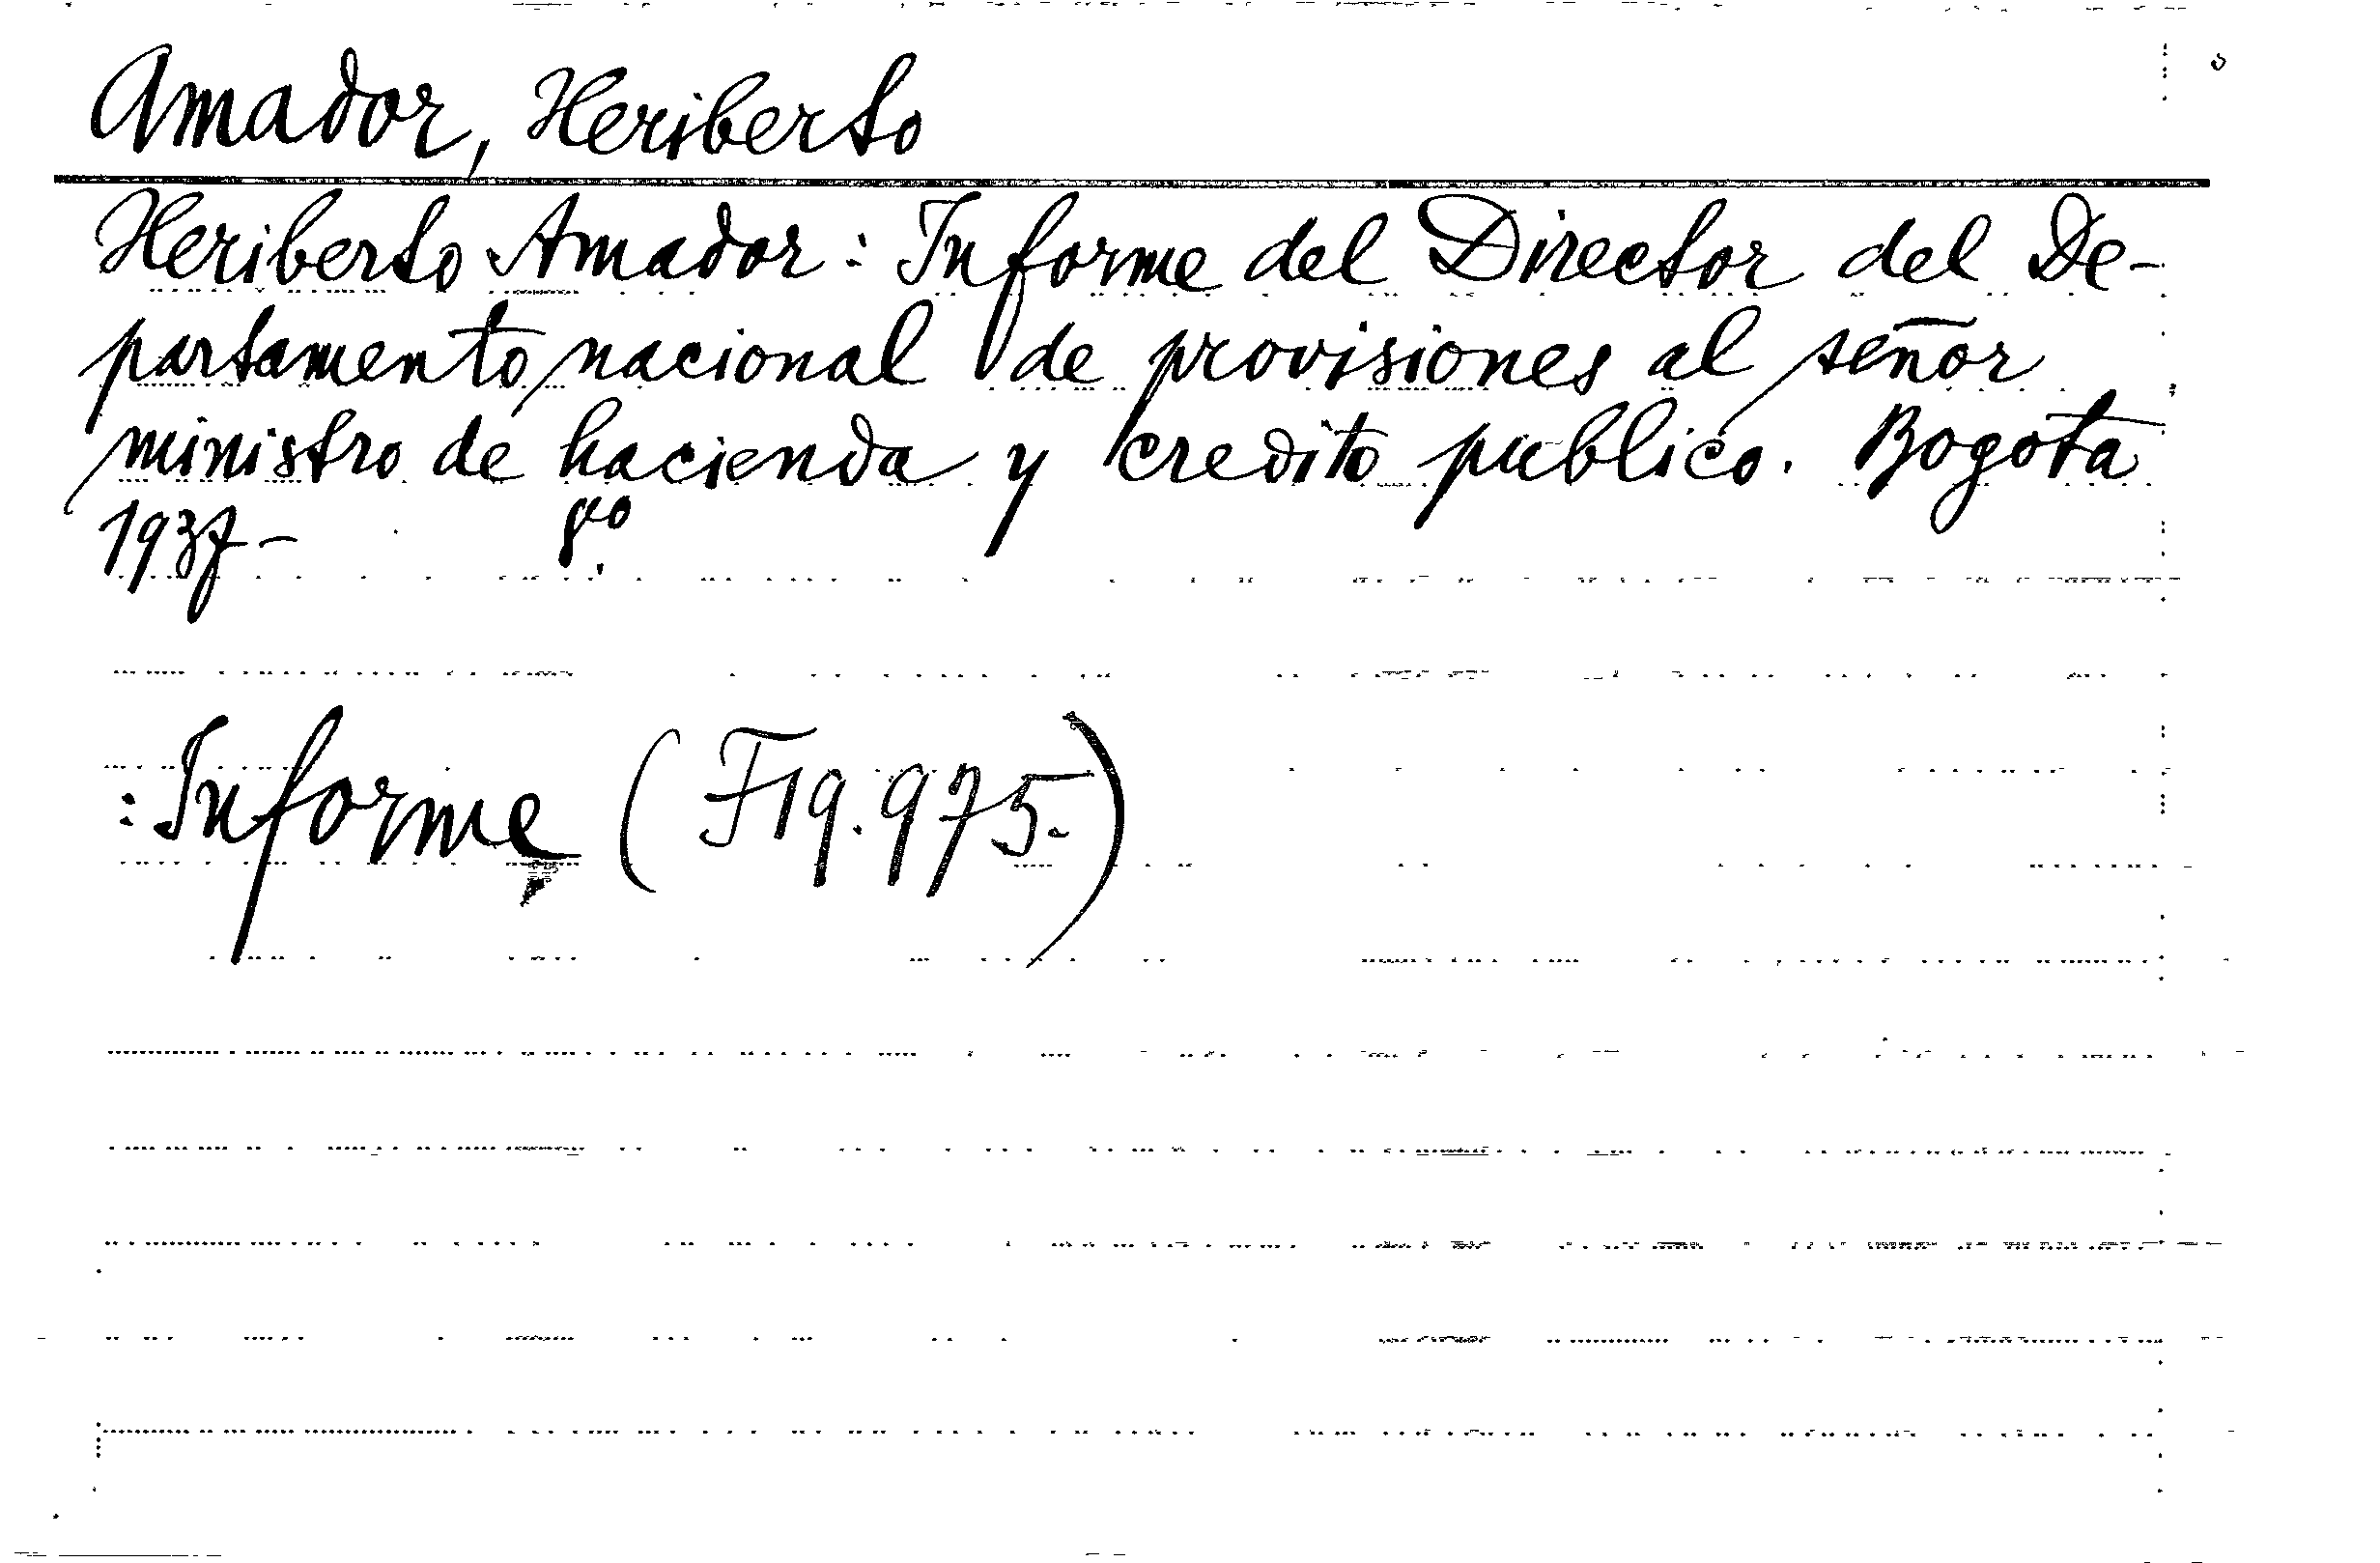 Amador, Heriberto
Heriberto Amador: Informe del Director del De-
partamento nacional de provisiones al señor
ministro de hacienda y credito publico. Bogota
1937- 8vo.
:Informe (F19.975.)